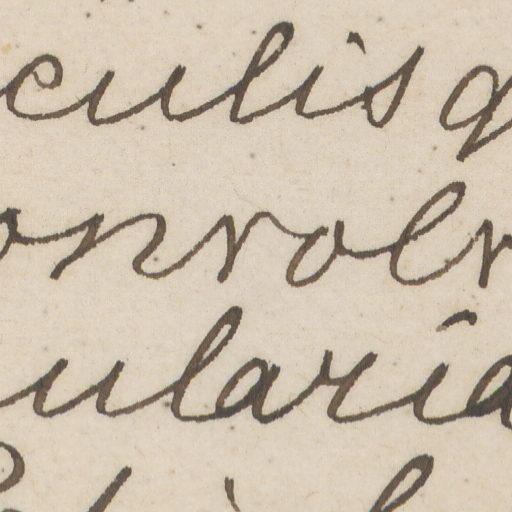 culis q
onvolv
ularia